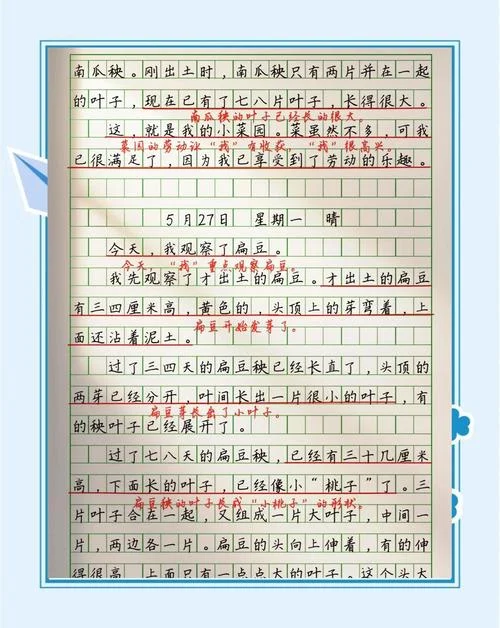 南瓜秧。刚出土时，南瓜秧只有两片并在一起
的叶子，现在已有了七八片叶子，长得很大。
南瓜秧的叶子已经长的很大。
这，就是我的小菜园。菜虽然不多，可我
菜园的劳动让“我”有收获，“我”很高兴。
已很满足了，因为我已享受到了劳动的乐趣。
5月27日 星期一 晴
今天，我观察了扁豆。
今天，“我”重点观察扁豆。
我先观察了才出土的扁豆。才出土的扁豆
有三四厘米高，黄色的，头顶上的芽弯着，上
扁豆开始发芽了。
面还沾着泥土。
过了三四天的扁豆秧已经长直了，头顶的
两芽已经分开，叶间长出一片很小的叶子，有
扁豆芽长出了小叶子。
的秧叶子已经展开了。
过了七八天的扁豆秧，已经有三十几厘米
高，下面长的叶子，已经像小“桃子”了。三
扁豆秧的叶子长成“小桃子”的形状。
片叶子合在一起，又组成一片大叶子，中间一
片，两边各一片。扁豆的头向上伸着，有的伸
得很高，上面只有一点点大的叶子。这个头大